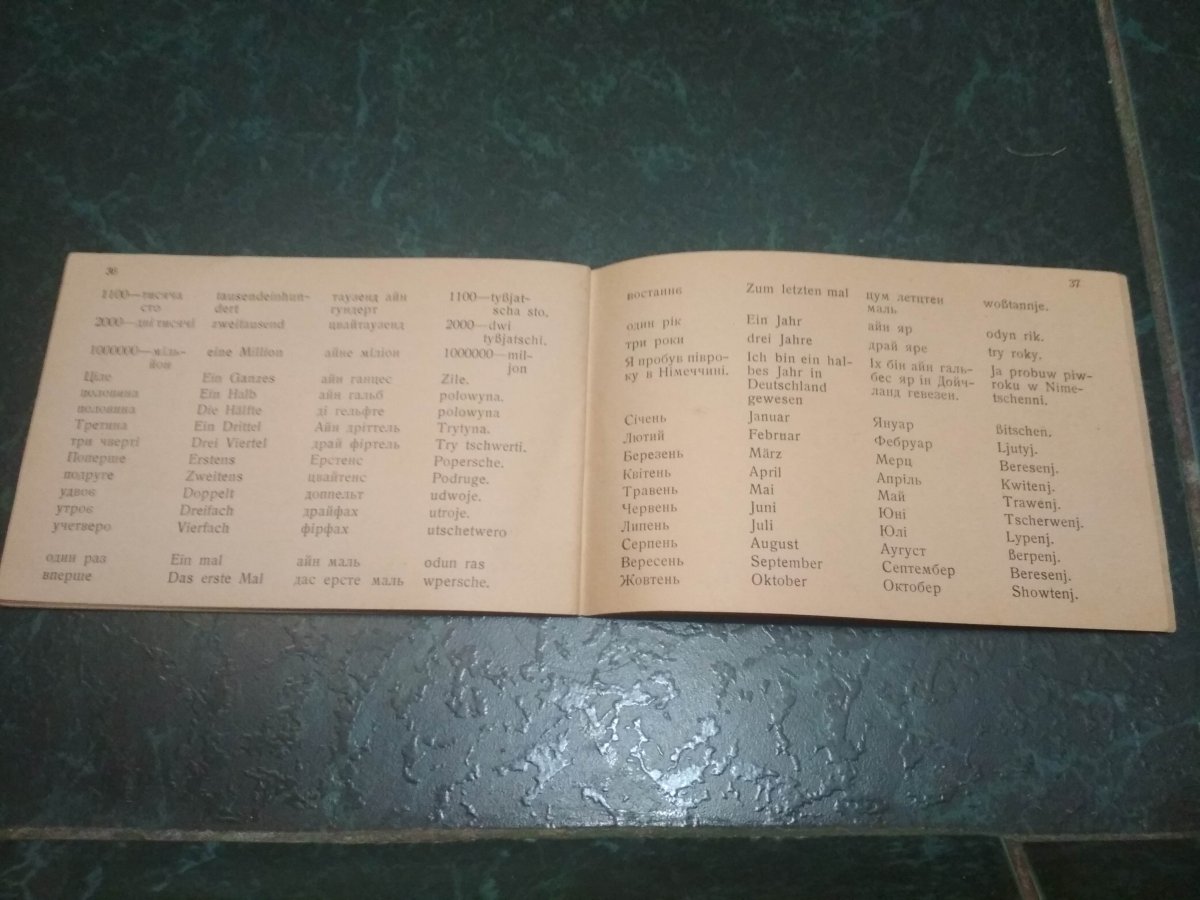 36
1100—тисяча tausendeinhun- таузенд айн 1100—tyßjat-
сто dert гундерт scha sto.
2000—дві тисячі zweitausend цвайтаузенд 2000—dwi
tyßjatschi.
1000000—міль- eine Million айне міліон 1000000—mil-
йон jon
Ціле Ein Ganzes айн ганцес Zile.
половина Ein Halb айн гальб polowyna.
половина Die Hälfte ді гельфте polowyna
Третина Ein Drittel Айн дріттель Trytyna.
три чверті Drei Viertel драй фіртель Try tschwerti.
Поперше Erstens Ерстенс Popersche.
подруге Zweitens цвайтенс Podruge.
удвоє Doppelt доппельт udwoje.
утроє Dreifach драйфах utroje.
учетверо Vierfach фірфах utschetwero
один раз Ein mal айн маль odun ras
вперше Das erste Mal дас ерсте маль wpersche.
37
востаннє Zum letzten mal цум летцтен woßtannje.
маль
один рік Ein Jahr айн яр odyn rik.
три роки drei Jahre драй яре try roky.
Я пробув півро- Ich bin ein hal- Іх бін айн галь- Ja probuw piw-
ку в Німеччині. bes Jahr in бес яр ін Дойч- roku w Nime-
Deutschland ланд гевезен. tschenni.
gewesen
Січень Januar Януар ßitschen.
Лютий Februar Фебруар Ljutyj.
Березень März Мерц Beresenj.
Квітень April Апріль Kwitenj.
Травень Mai Май Trawenj.
Червень Juni Юні Tscherwenj.
Липень Juli Юлі Lypenj.
Серпень August Аугуст ßerpenj.
Вересень September Септембер Beresenj.
Жовтень Oktober Октобер Showtenj.